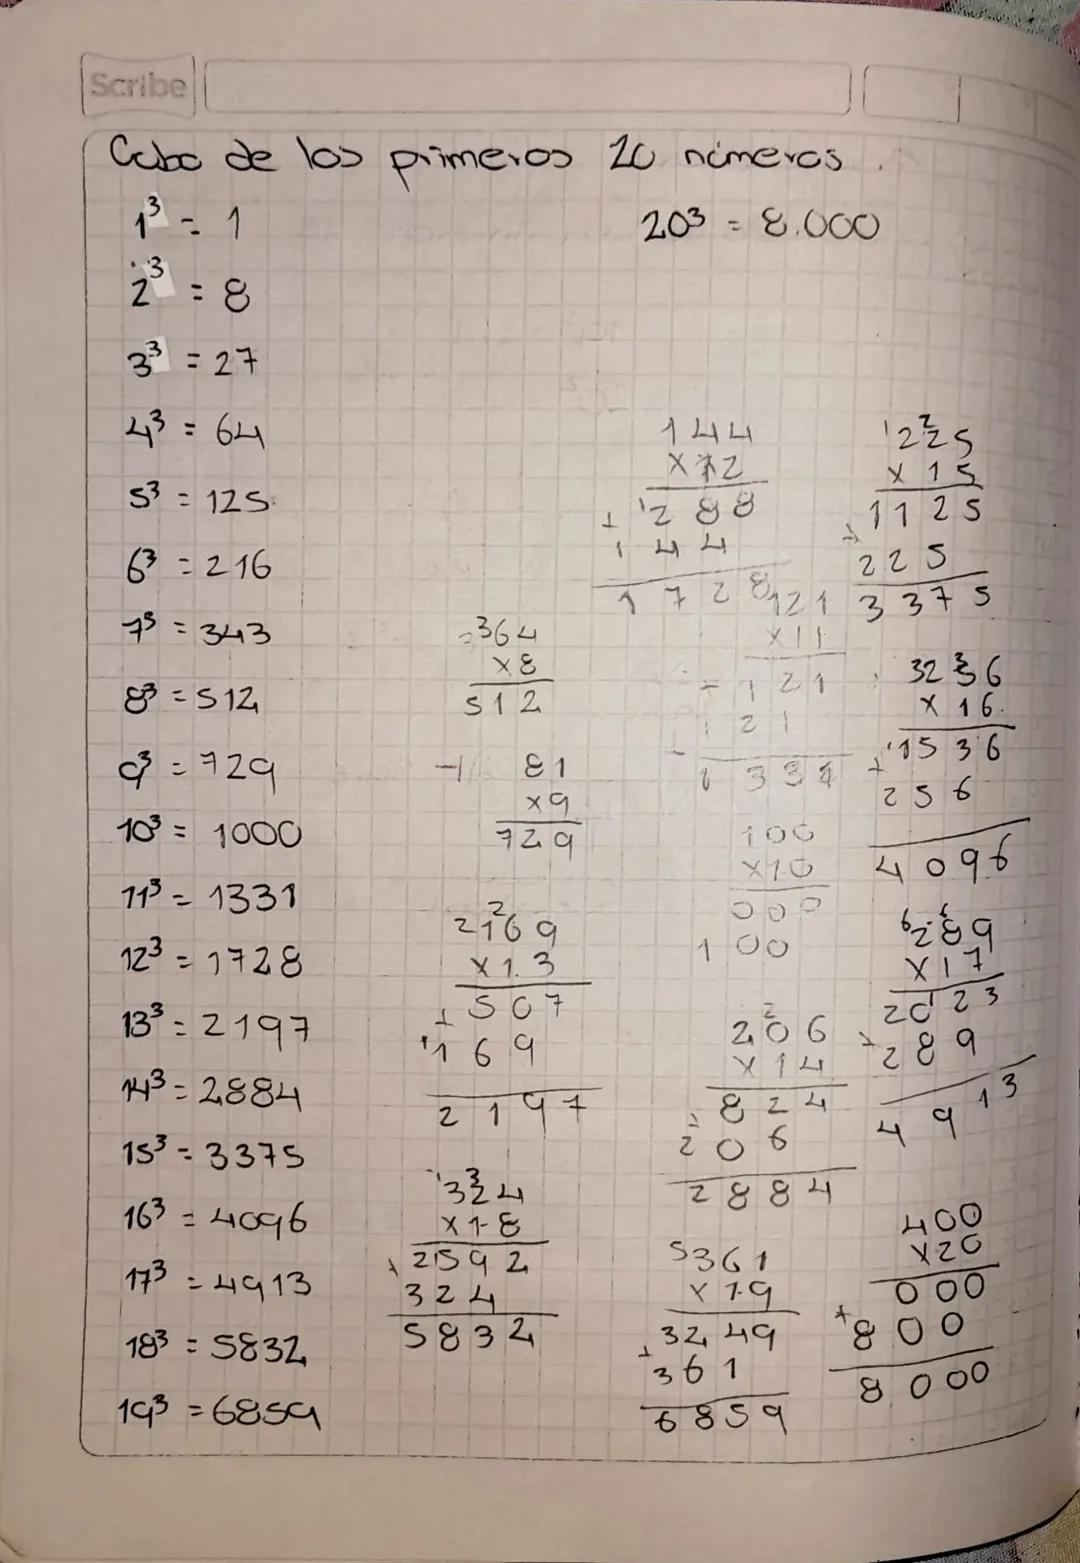 Scribe
Cubo de los primeros 20 números.
1³ = 1
20³ = 8.000
2³ = 8
3³ = 27
4³ = 64
5³ = 125
6³ = 216
7³ = 343
8³ = 512
9³ = 729
10³ = 1000
11³ = 1331
12³ = 1728
13³ = 2197
14³ = 2884
15³ = 3375
16³ = 4096
17³ = 4913
18³ = 5832
19³ = 6859
³64
x8
512
81
x9
729
169
x13
+ 507
169
2197
324
x18
+ 2592
324
5832
144
x12
+ 288
144
1728
121
x11
121
121
1331
100
x10
000
100
206
x14
824
206
2884
361
x19
+ 3249
361
6859
225
x15
1125
+ 225
3375
256
x16
+ 1536
256
4096
289
x17
2023
+ 289
4913
400
x20
000
+ 800
8000